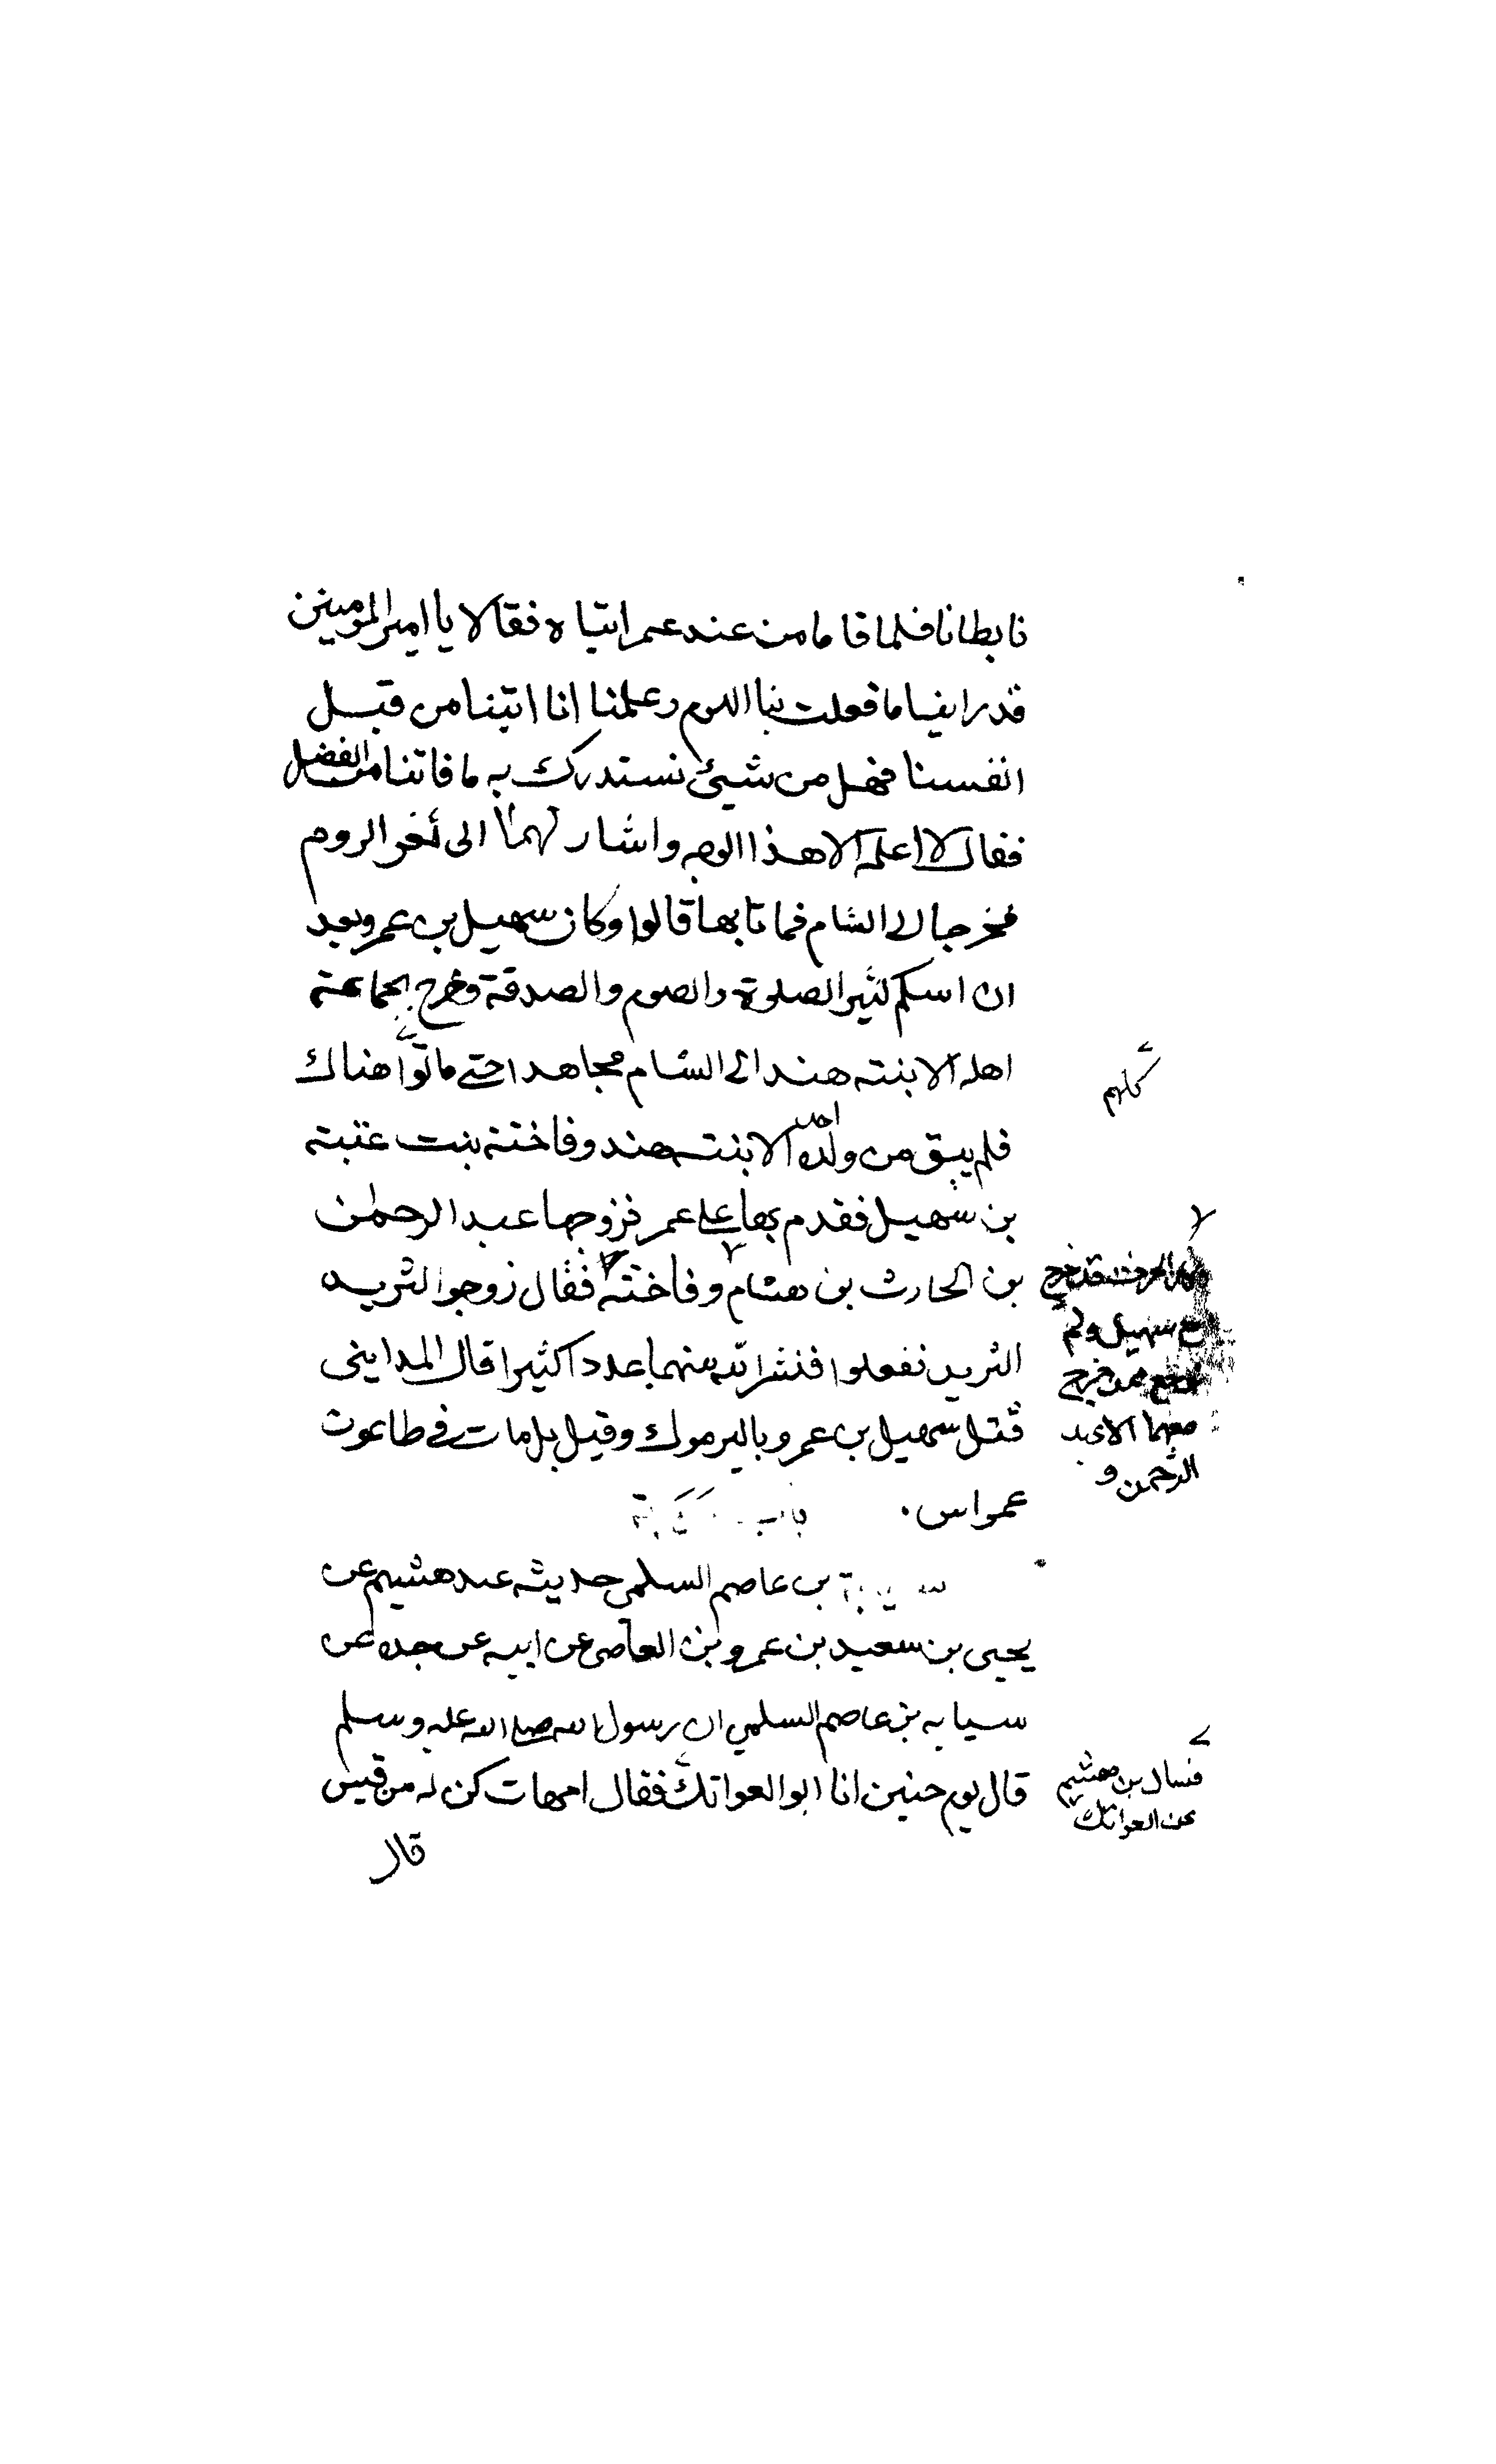 فابطانا فلما قاما من عند عمر اتياه فقالا يا امير المومنين
قد راينا ما فعلت بنا اليوم وعلمنا انا اتينا من قبل
انفسنا فهل من شيئ نستدرك به ما فاتنا من الفضل
فقال لا اعلمه الا هذا الوجه واشار لهما الى ثغر الروم
فخرجا الى الشام فماتا بها قالوا وكان سهيل بن عمرو بعد
ان اسلم كثير الصلوة والصوم والصدقة وخرج بجماعة
اهله الا بنته هندا الى الشام مجاهدا حتى ماتوا هناك
كلهم
فلم يبق من ولده احد الا بنته هند وفاختة بنت عتبة
بن سهيل فقدم بها على عمر فزوجها عبد الرحمن
بن الحارث بن هشام وفاختة فقال زوجوا الثريد
وكان الحرث قد خرج
مع سهيل ولم
يرجع ممن خرج
معهما الا عبد
الرحمن و
الثريد ففعلوا فنشر الله منهما عددا كثيرا قال المدايني
قتل سهيل بن عمرو باليرموك وقيل بل مات في طاعون
عمواس . باب
بن عاصم السلمي حديثه عند هشيم عن
يحيى بن سعيد بن عمرو بن العاصي عن ابيه عن جده عن
سيابه بن عاصم السلمي ان رسول الله صلى الله عليه وسلم
قال يوم حنين انا ابو العواتك فقال امهات كن له من قيس
فسال بن هشيم
عن العواتك
قال